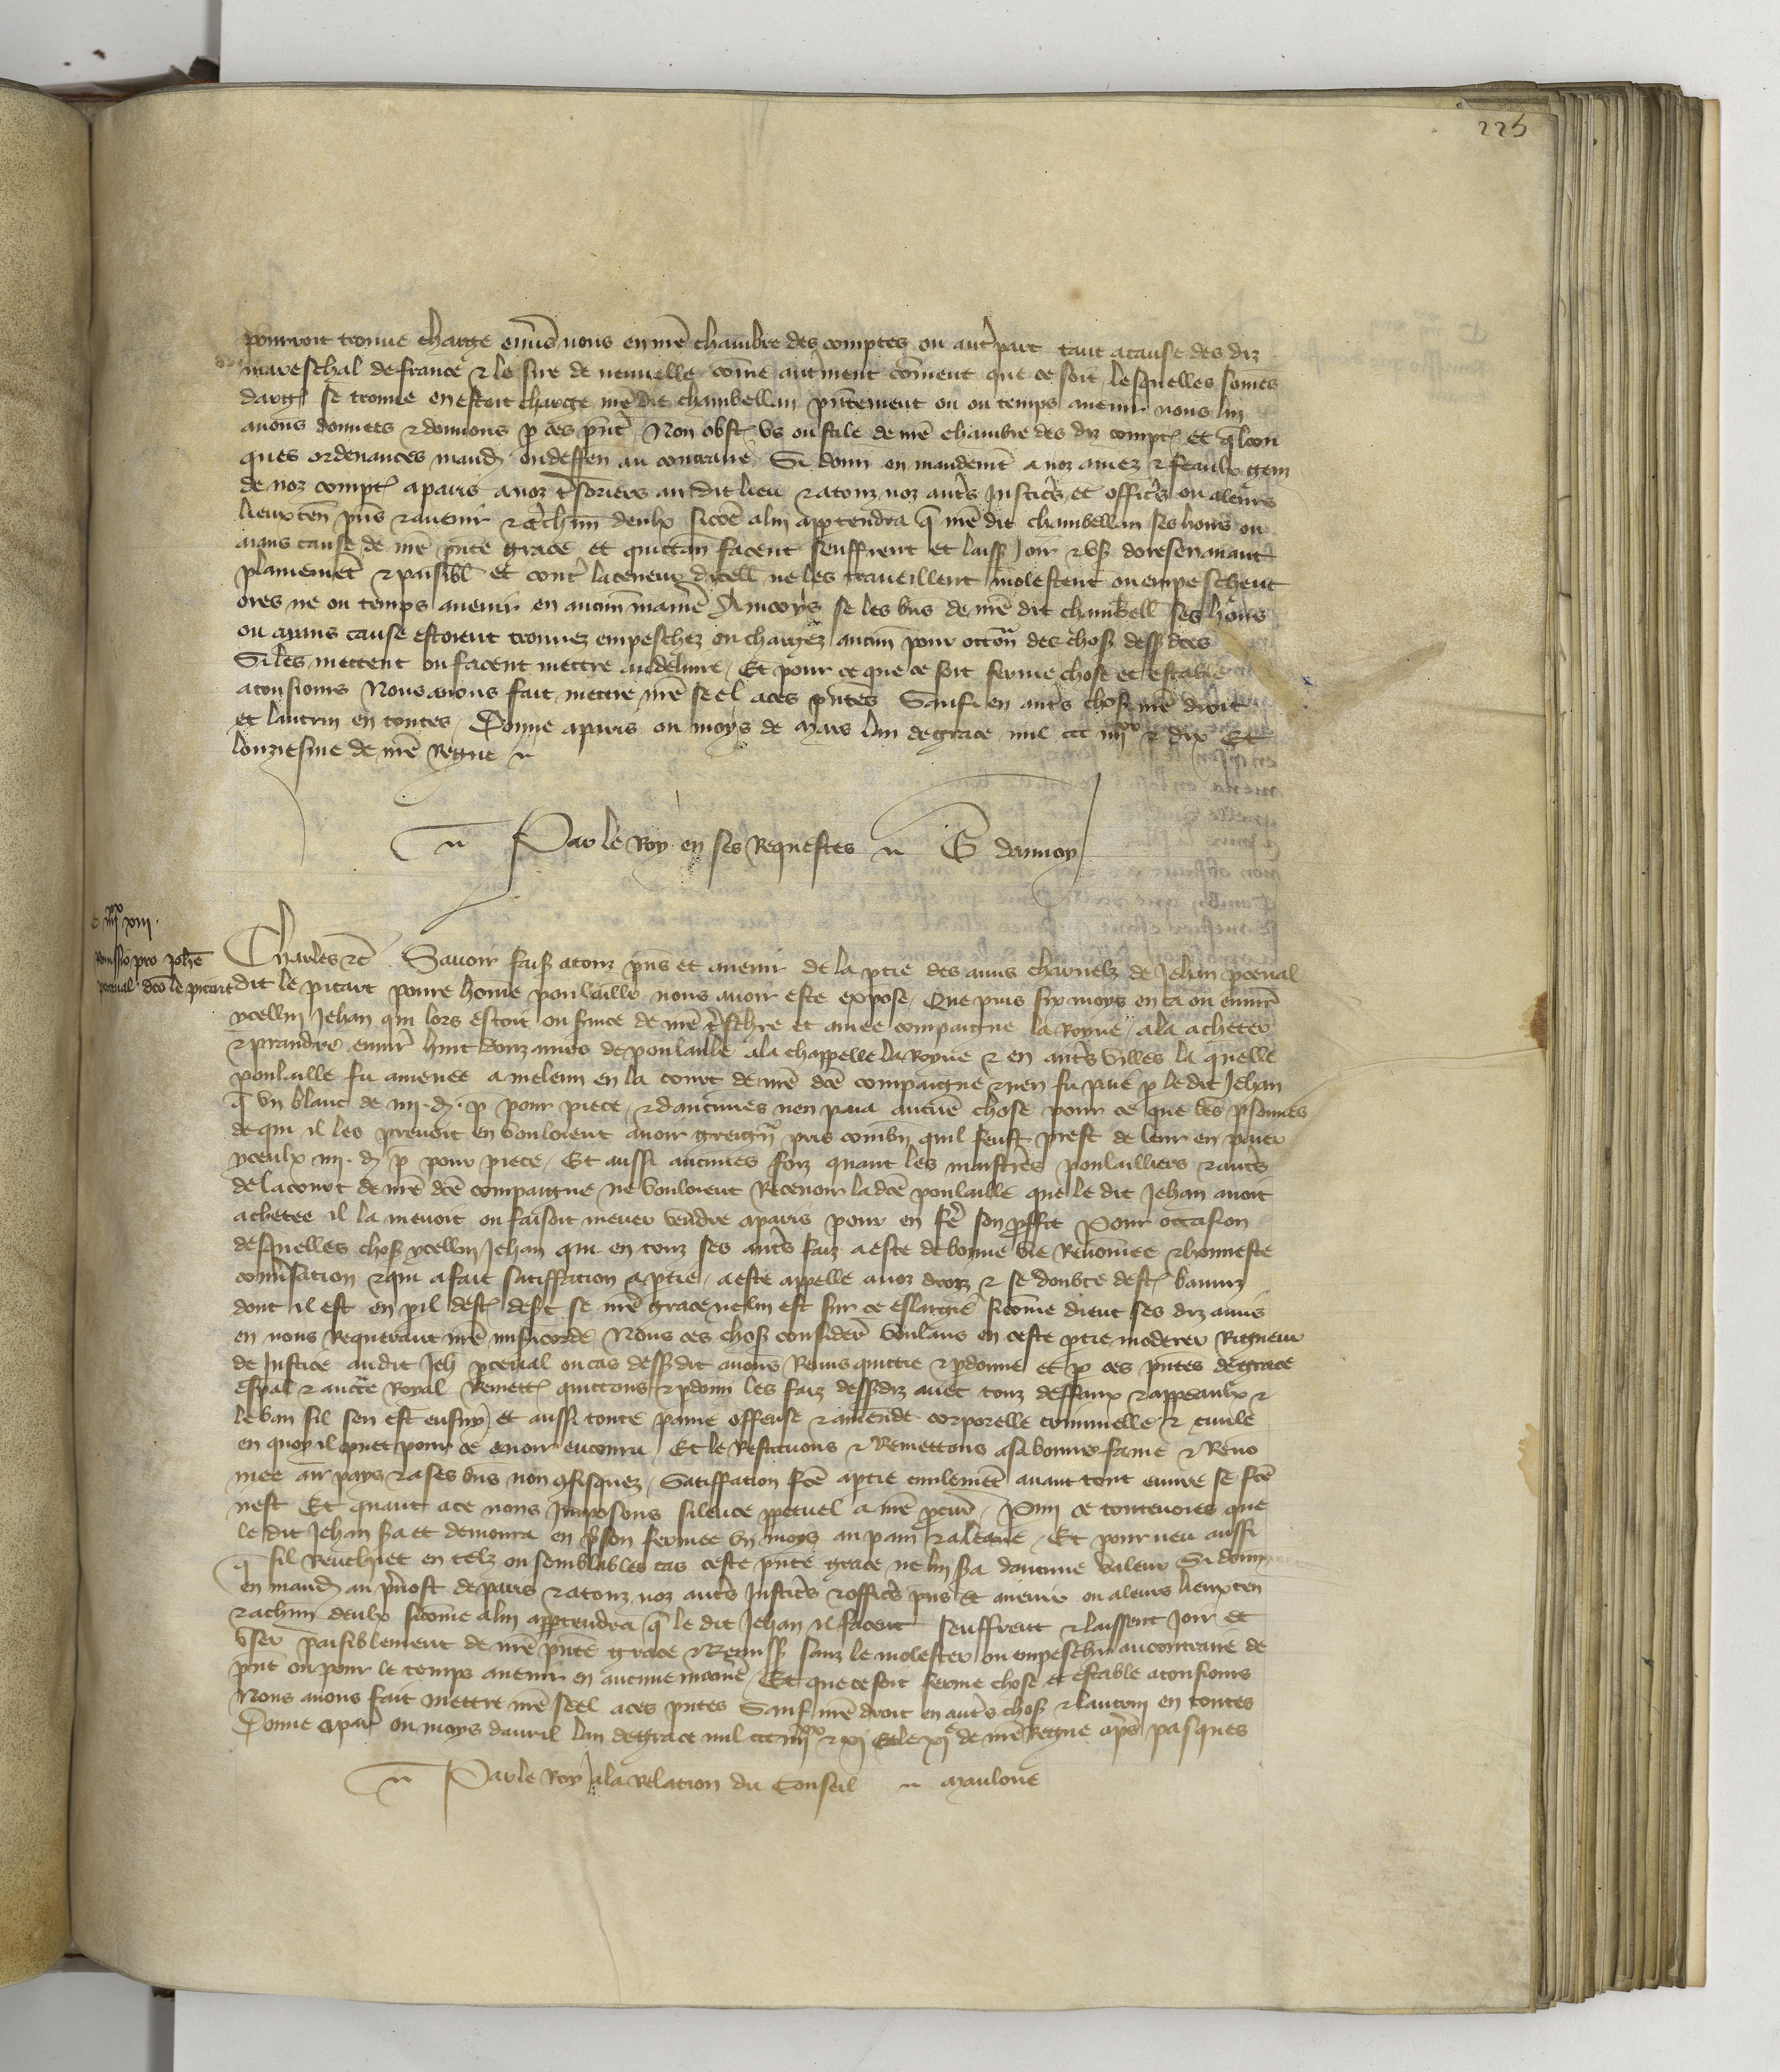 225
pourroit trouve charge envs nous en nrẽ chambre des comptes ou autrepart tant a cause des diz
mareschal de france & le sire de neuuelle cõme autment cõment que ce soit lesquelles sõmes
darg se trouve en estoit charge nrẽ dit chambellan pñtement ou ou temps auenir nous lui
auons donnees & donnons p ces pñt Non obst us ou stile de nrẽ chambre des diz compt et qlcon
ques ordenances mand ou deffen au contraire Si donn en mandemt a noz amez & feaulx gens
de noz compt a paris a noz tsoriers au dit lieu & a touz noz auts justics et offics ou a leurs
lieuxten pñs & auenir & a chũn deulx sicõe a lui apptendra q nrẽ dit chambellan ses hoirs ou
aians cause de nrẽ pñte grace et quittan facent seuffrent et laiss joir & us doresenauant
plainemt & paisibl et contr la teneur dicell ne les traueillent molestent ou empeschent
ores ne ou temps auenir en aucun maniẽ Aincoys se les biens de nrẽ dit chambell ses hoirs
ou aians cause estoient trouuez empeschez ou chargez aucun pour occon des chos dess dces
Si les mettent ou facent mettre au deliure Et pour ce que ce soit ferme chose et estable
a tousiours Nous auons fait mettre nrẽ seel a ces pñtes Sauf en auts chos nrẽ droit
et lautrui en toutes Donne a paris ou moys de mars lan de grace mil ccc iiijxx & dix Et
lonziesme de nrẽ Regne
Par le Roy en ses Requestes G daunoy
C iiijxx xiii
remissio pro johe
pceual dco le picart
Charles &c Sauoir fais a touz pñs et auenir de la ptie des amis charnelz de Jehan pceual
dit le picart poure hõme poulaillr nous auoir este expose Que puis six moys en ca ou enuir
ycellui Jehan qui lors estoit ou seruice de nrẽ trescher et amee compaigne la Royne ala acheter
& prandre enuir huit douzaines de poulaille a la chappelle la Royne & en auts villes la quelle
poulaille fu amenee a meleun en la court de nrẽ dce compaigne & nen fu paie p le dit Jehan
q un blanc de iiij d p pour piece & daucunes nen paia aucune chose pour ce que les psonnes
de qui il les prenoit en vouloient auoir greign pris combn quil feust prest de leur en paier
yceulx iiij d p pour piece Et aussi aucunes foiz quant les maistres poulailliers & auts
de la court de nrẽ dce compaigne ne vouloient Receuoir la dce poulaille que le dit Jehan auoit
achetee il la menoit ou faisoit mener vendre a paris pour en fe son proffit Pour occasion
desquelles chos ycellui Jehan qui en touz ses auts faiz a este de bonne vie Renõmee & honneste
conusation & qui a fait satiffation a ptie a este appelle a noz droiz & se doubte dest banniz
dont il est en pil dest desert se nrẽ grace ne lui est sur ce eslargie sicõme dient ses diz amis
en nous Requerant nrẽ misicorde Nous ces chos considerẽ voulans en ceste ptie moderer Rigueur
de justice au dit Jeh pceual ou cas dess dit auons Remis quittie & pdonne et p ces pñtes de grace
espal & aucte Royal Remett quittons & pdonn les faiz dessdiz auec touz deffaux & appeaulx &
le ban sil sen est ensuy et aussi toute paine offense & amende corporelle criminelle & ciuile
en quoy il puet pour ce auoir encouru Et le Restituons & Remettons a sa bonne fame & Reno
mee au pays & a ses bns non ɔfisquez Satiffation fce a ptie ciuilemt auant tout euure se fce
nest Et quant a ce nous Jmposons silence ppetuel a nrẽ pcur Pmi ce touteuoies que
le dit Jehan sa et demoura en pson fermee un moys au pain & a leaue Et pourueu aussi
q sil Renchiet en telz ou semblables cas ceste pñte grace ne lui sa daucune valeur Si donn
en mand au puost de paris & a touz noz auts justics & offics pñs et auenir ou a leurs lieuxten
& a chũn deulx sicõme a lui apptendra q le dit Jehan ilz facent seuffrent & laissent joir et
user paisiblement de nrẽ pñte grace & Remiss sanz le molester ou empeschr au contraire de
pñt ou pour le temps auenir en aucune maniẽ Et que ce soit ferme chose et estable a tousiours
Nous auons fait mettre nrẽ seel a ces pñtes Sauf nrẽ droit en auts chos & lautrui en toutes
Donne a par ou moys dauril lan de grace mil ccc iiijxx & xi Et le xje de nrẽ Regne aps pasques
Par le Roy a la Relation du Conseil Mauloue